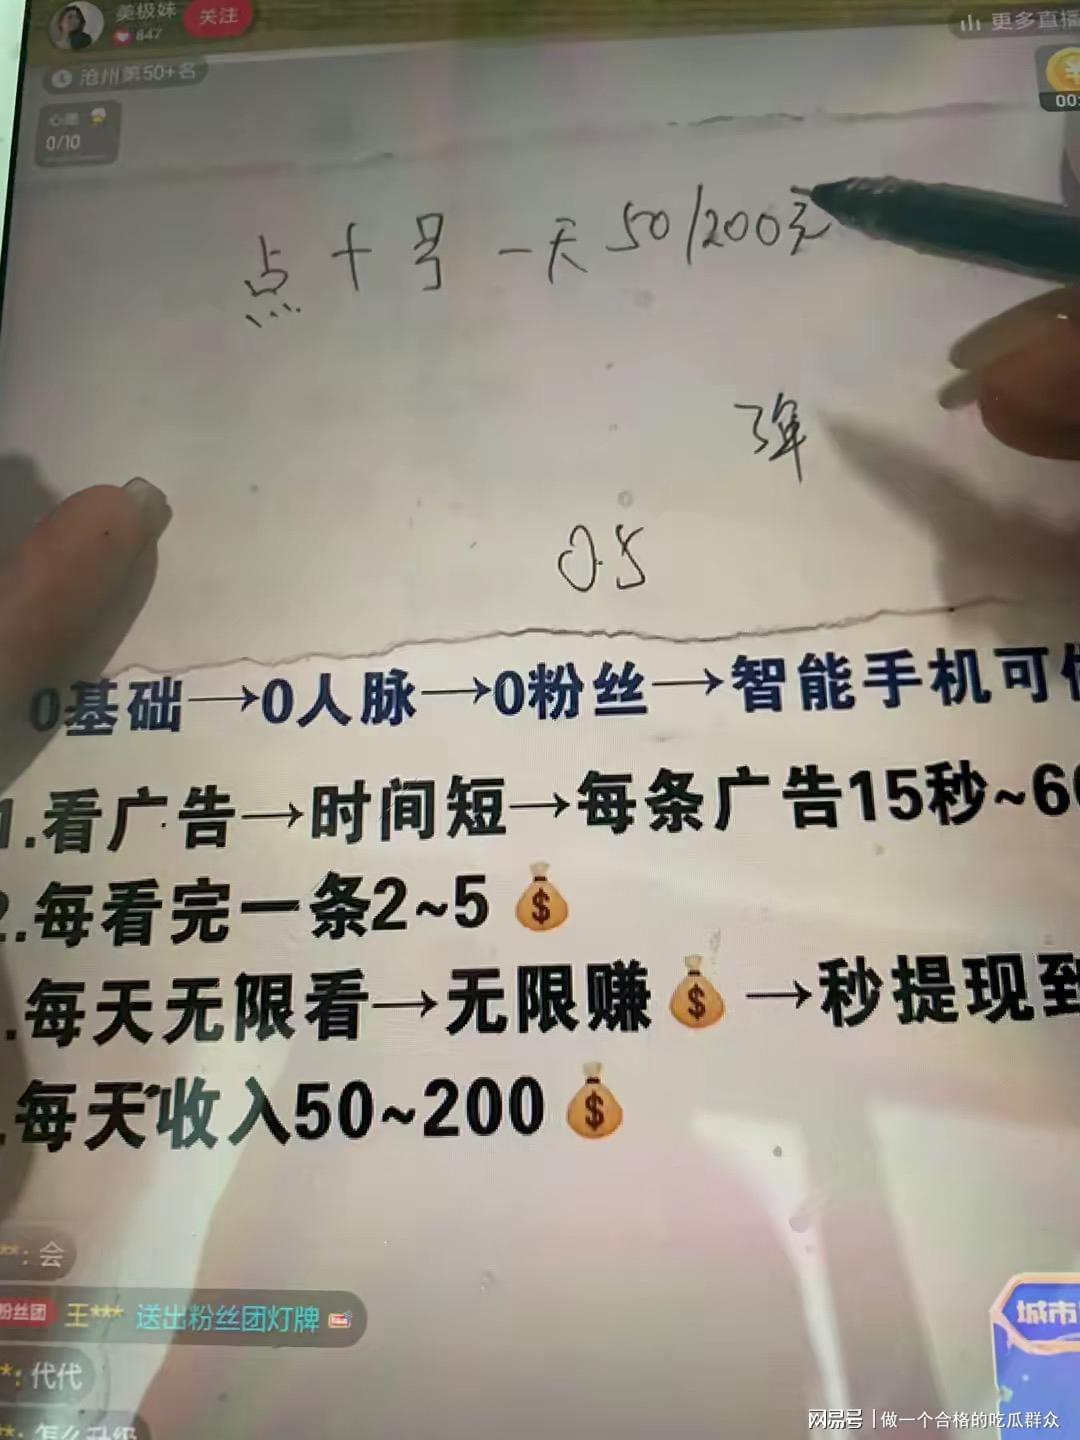 美极妹
关注
847
更多直播
沧州第50+名
心愿
0/10
00:
点十号一天50/200元
弹
0.5
0基础→0人脉→0粉丝→智能手机可
1.看广告→时间短→每条广告15秒~60
2.每看完一条2~5
.每天无限看→无限赚→秒提现到
.每天收入50~200
**: 会
粉丝团 王*** 送出粉丝团灯牌
*: 代代
**: 怎么升级
城市
网易号 | 做一个合格的吃瓜群众